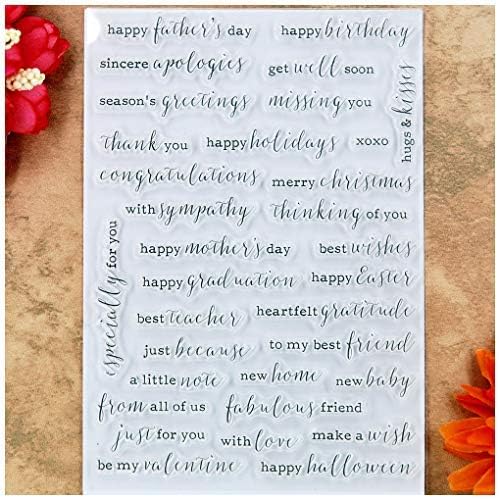 happy father's day happy birthday
sincere apologies get well soon
season's greetings missing you
hugs & kisses
thank you happy holidays xoxo
congratulations merry christmas
with sympathy thinking of you
especially for you
happy mother's day best wishes
happy graduation happy Easter
best teacher heartfelt gratitude
just because to my best friend
a little note new home new baby
from all of us fabulous friend
just for you with love make a wish
be my valentine happy halloween